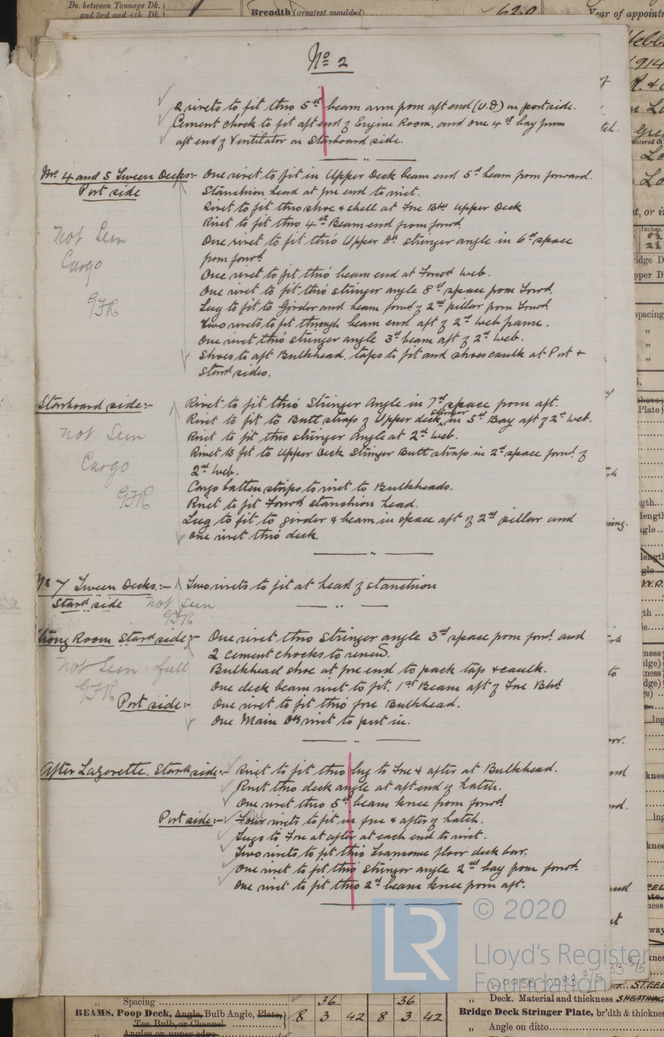 Do. between Tonnage Dk.
and 3rd and 4th Dk.
Breadth (greatest moulded)
62.0
Year of appointment
No 2
2 rivets to fit thro 5th beam arm from aft end (U.D) on port side.
Cement chock to fit aft end of Engine Room, and one 4th bay from
aft end of Ventilator on Starboard side.
Nos 4 and 5 Tween Decks:- One rivet to fit in Upper Deck beam end 5th beam from forward.
Port side
Stanchion head at fore end to rivet.
Rivet to fit thro shoe & shell at Fore Bhd Upper Deck
Rivet to fit thro 4th Beam end from forwd
One rivet to fit thro Upper Dk stringer angle in 6th space
from forwd
Not Seen
Cargo
GFR
One rivet to fit thro beam end at Forwd web.
One rivet to fit thro stringer angle 8th space from Forwd.
Lug to fit to Girder and beam ford of 2nd pillar from Forwd.
Two rivets to fit through beam end aft of 2nd web frame.
One rivet thro stringer angle 3rd beam aft of 2nd web.
Shoes to aft Bulkhead, taps to fit and shoes caulk at Port &
Stard sides.
Starboard side:- Rivet to fit thro Stringer Angle in 7th space from aft.
Rivet to fit to Butt straps of Upper deck stringer in 5th Bay aft of 2nd web.
Rivet to fit thro stringer Angle at 2nd web.
Rivet to fit to Upper Deck Stringer Butt straps in 2nd space forwd of
2nd web.
Not Seen
Cargo
GFR
Cargo batten strips to rivet to Bulkheads.
Rivet to fit Forwd stanchion head.
Lug to fit to girder & beam in space aft of 2nd pillar and
one rivet thro deck.
No 7 Tween Decks:- Two rivets to fit at head of stanchion
Stard side
not seen
GFR
Strong Room Stard side:- One rivet thro Stringer angle 3rd space from forwd and
2 cement chocks to renew.
not Seen full
GFR
Bulkhead shoe at fore end to pack tap & caulk.
One deck beam rivet to fit, 1st Beam aft of Fore Bhd
Port side:- One rivet to fit thro fore Bulkhead.
One Main Dk rivet to put in.
After Lazarette. Stard side:- Rivet to fit thro lug to Fore & after at Bulkhead.
Rivet thro deck angle at aft end of hatch.
One rivet thro 5th beam knee from forwd
Port side:- Four rivets to fit in fore & after of hatch.
Lugs to Fore at after at each end to rivet.
Two rivets to fit thro transome floor deck bar.
One rivet to fit thro stringer angle 2nd bay from forwd.
One rivet to fit thro 2nd beam knee from aft.
LR
© 2020
Lloyd's Register
Foundation
" Spacing
36
36
BEAMS, Poop Deck, Angle, Bulb Angle, Plate,
Tee Bulb, or Channel
8 3 42 8 3 42
Angles on upper edge
" Deck. Material and thickness
Bridge Deck Stringer Plate, br'dth & thickness
" Angle on ditto